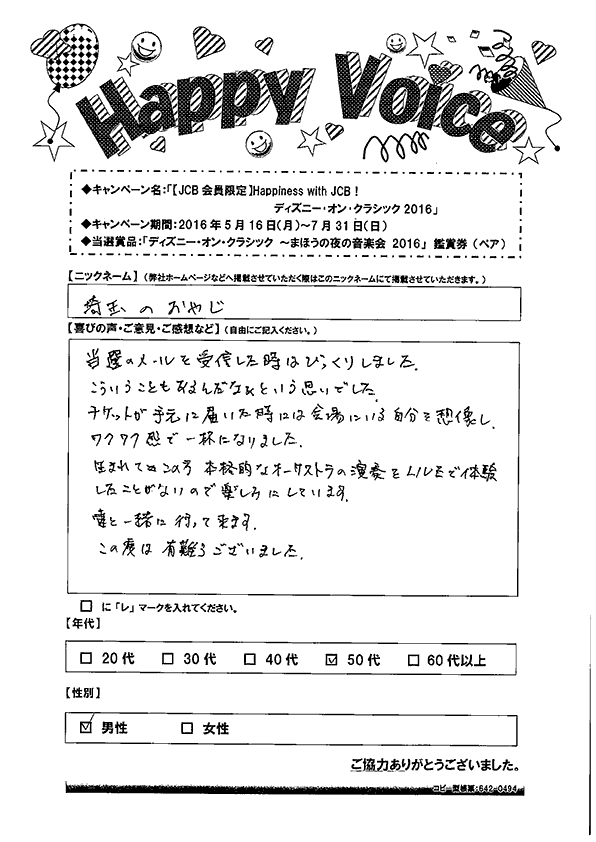 Happy Voice
◆キャンペーン名:「【JCB 会員限定】Happiness with JCB!
ディズニー・オン・クラシック 2016」
◆キャンペーン期間:2016 年 5 月 16 日(月)~7 月 31 日(日)
◆当選賞品:「ディズニー・オン・クラシック ~まほうの夜の音楽会 2016」 鑑賞券 (ペア)
【ニックネーム】(弊社ホームページなどへ掲載させていただく際はこのニックネームにて掲載させていただきます。)
埼玉のおやじ
【喜びの声・ご意見・ご感想など】(自由にご記入ください。)
当選のメールを受信した時はびっくりしました。
こういうこともあるんだなぁという思いでした。
チケットが手元に届いた時には会場にいる自分を想像し、
ワクワク感で一杯になりました。
生まれてこの方 本格的なオーケストラの演奏をLIVEで体験
したことがないので楽しみにしています。
妻と一緒に行って来ます。
この度は有難うございました。
□ に「レ」マークを入れてください。
【年代】
□ 20 代 □ 30 代 □ 40 代 ☑ 50 代 □ 60 代以上
【性別】
☑ 男性 □ 女性
ご協力ありがとうございました。
:642-0494